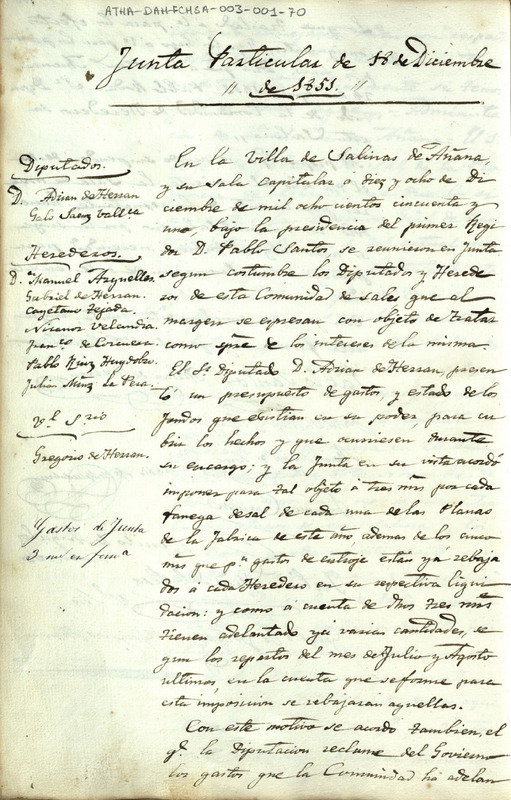 ATHA-DAH-FCHSA-003-001-70
Junta Particular de 18 de Diciembre
" de 1851. "
Diputados.
D. Adrian de Herran
Galo Saenz Vallca
Herederos.
D. Manuel Arguelles.
Gabriel de Herran.
Cayetano Tejada.
Nicanor Velandia.
Franco. de Corcuera.
Pablo Ruiz Huydobro.
Julian Muñz. la Pera.
Vl. Srio
Gregorio de Herran.
Gastos de Junta
3 ms en fan.a
En la Villa de Salinas de Añana,
y su Sala Capitular á diez y ocho de Di
ciembre de mil ocho cientos cincuenta y
uno, bajo la presidencia del primer Regi
dor D. Pablo Santos, se reunieron en Junta
segun costumbre los Diputados y Herede
ros de esta Comunidad de Sales que al
margen se espresan con objeto de tratar
como spre de los intereses de la misma.
El Sr Diputado D. Adrian de Herran, presen
tó un presupuesto de gastos, y estado de los
fondos que esistian en su poder, para cu
brir los hechos y que ocurriesen durante
su encargo; y la Junta en su vista acordó
imponer para tal objeto á tres mrs por cada
fanega de sal de cada una de las Planas
de la Fabrica de este año, ademas de los cinco
mrs que pa gastos de entroje estan yá rebaja
dos á cada Heredero en su respectiva liqui
dacion: y como á cuenta de dhos tres mrs
tienen adelantado ya varias cantidades, se
gun los repartos del mes de Julio y Agosto
ultimos, en la cuenta que se forme para
esta imposicion se rebajaran aquellas.
Con este motivo se acordo tambien, el
qe la Diputacion reclame del Govierno
los gastos que la Comunidad ha adelan